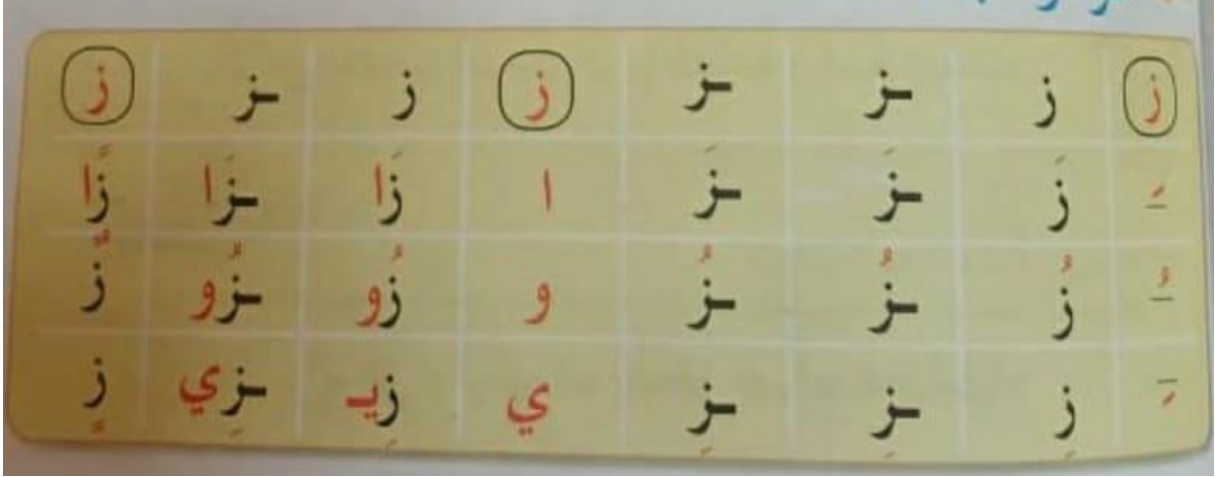 ز ز ـز ـز ز ز ـز ز
ـَ زَ ـزَ ـزَ ا زَا ـزَا زًا
ـُ زُ ـزُ ـزُ و زُو ـزُو زٌ
ـِ زِ ـزِ ـزِ ي زِيـ ـزِي زٍ